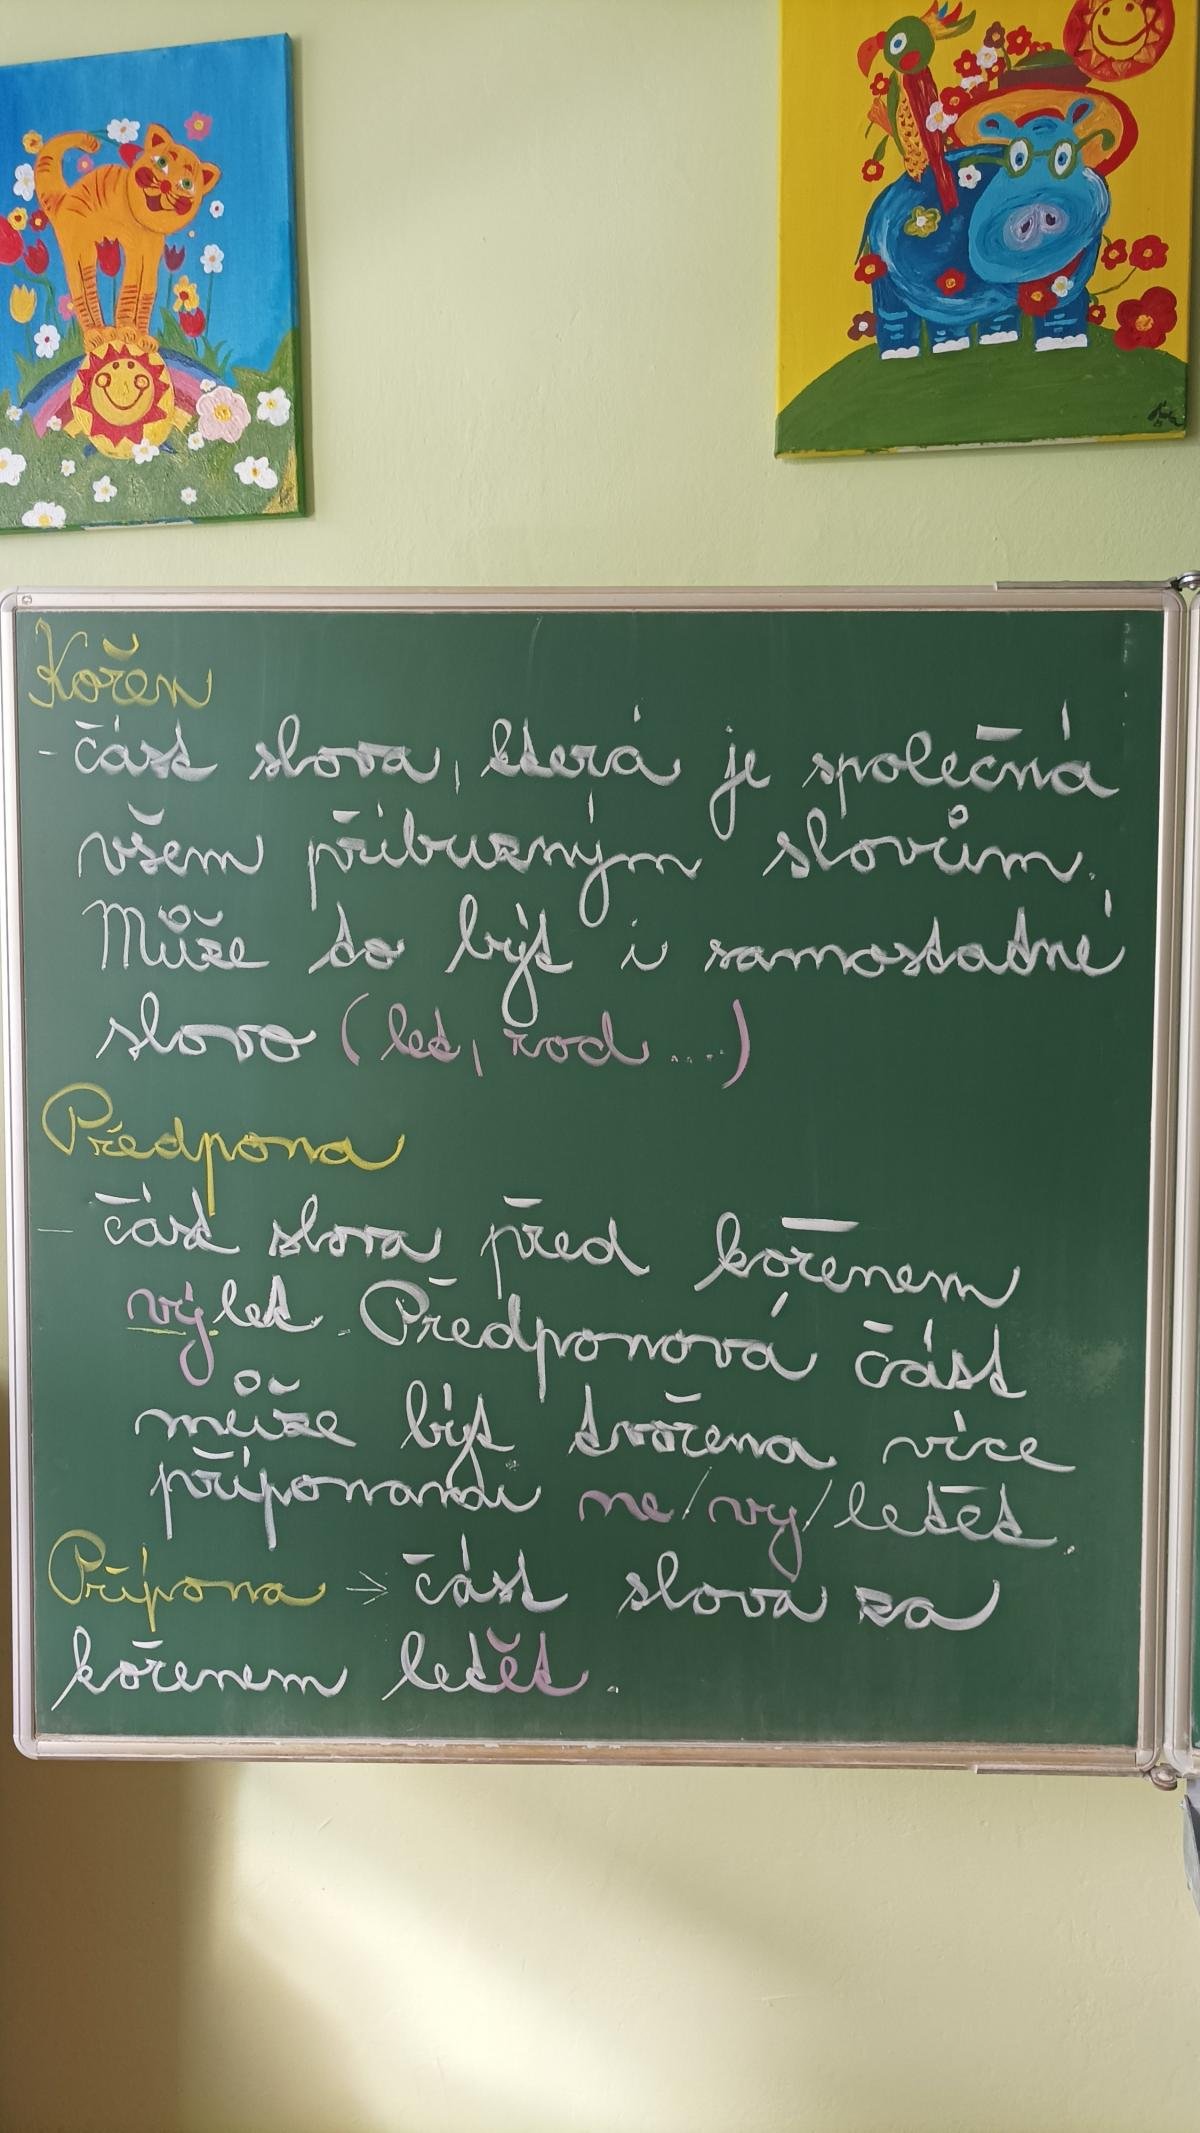 Kořen
- část slova, která je společná
všem příbuzným slovům.
Může to být i samostatné
slovo (let, rod ....)
Předpona
- část slova před kořenem
výlet. Předponová část
může být tvořena více
příponami ne/vy/letět.
Přípona -> část slova za
kořenem letět.